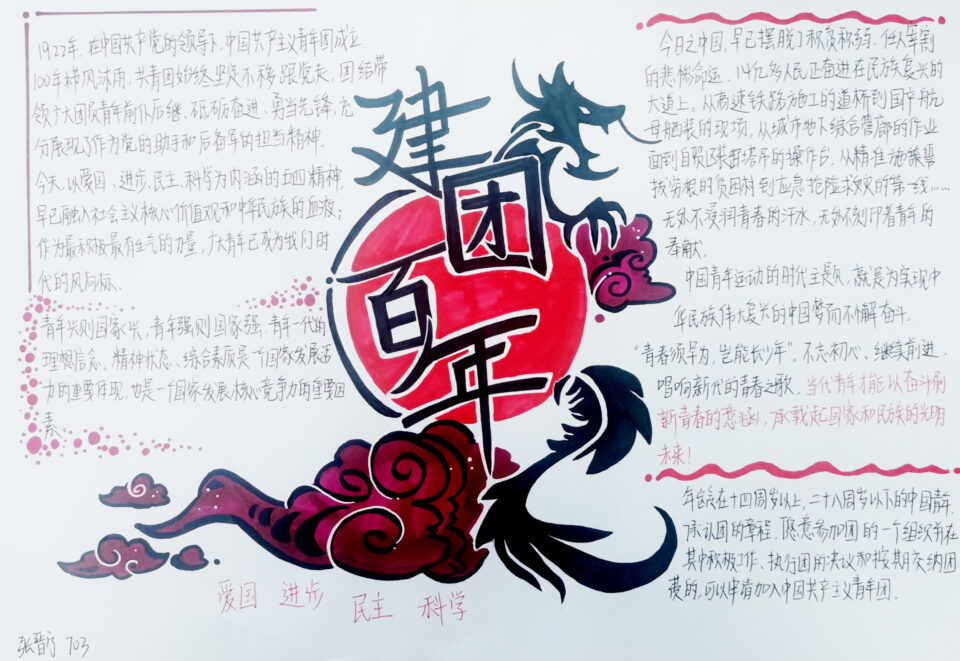 1922年,在中国共产党的领导下,中国共产主义青年团成立
100年栉风沐雨,共青团始终坚定不移跟党走,团结带
领广大团员青年前仆后继、砥砺奋进、勇当先锋,充
分展现了作为党的助手和后备军的担当精神.
今天,以爱国、进步、民主、科学为内涵的五四精神,
早已融入社会主义核心价值观和中华民族的血液;
作为最积极最有生气的力量,广大青年已成为我们时
代的风向标.
青年兴则国家兴,青年强则国家强.青年一代的
理想信念、精神状态、综合素质是一个国家发展活
力的重要体现,也是一个国家发展核心竞争力的重要因
素.
建
团
百
年
今日之中国,早已摆脱了积贫积弱、任人宰割
的悲惨命运,14亿多人民正奋进在民族复兴的
大道上。从高速铁路施工的道桥到国产航
母舾装的现场,从城市地下综合管廊的作业
面到自贸区装卸塔吊的操作台,从精准施策
拔穷根的贫困村到应急抢险救灾的第一线……
无处不浸润青春的汗水,无处不刻印着青年的
奉献.
中国青年运动的时代主题,就是为实现中
华民族伟大复兴的中国梦而不懈奋斗.
“青春须早为,岂能长少年”。不忘初心、继续前进,
唱响新时代的青春之歌.当代青年才能以奋斗刷
新青春的意涵,承载起国家和民族的光明
未来!
年龄在十四周岁以上,二十八周岁以下的中国青年,
承认团的章程,愿意参加团的一个组织并在
其中积极工作、执行团的决议和按期交纳团
费的,可以申请加入中国共产主义青年团。
爱国 进步 民主 科学
703